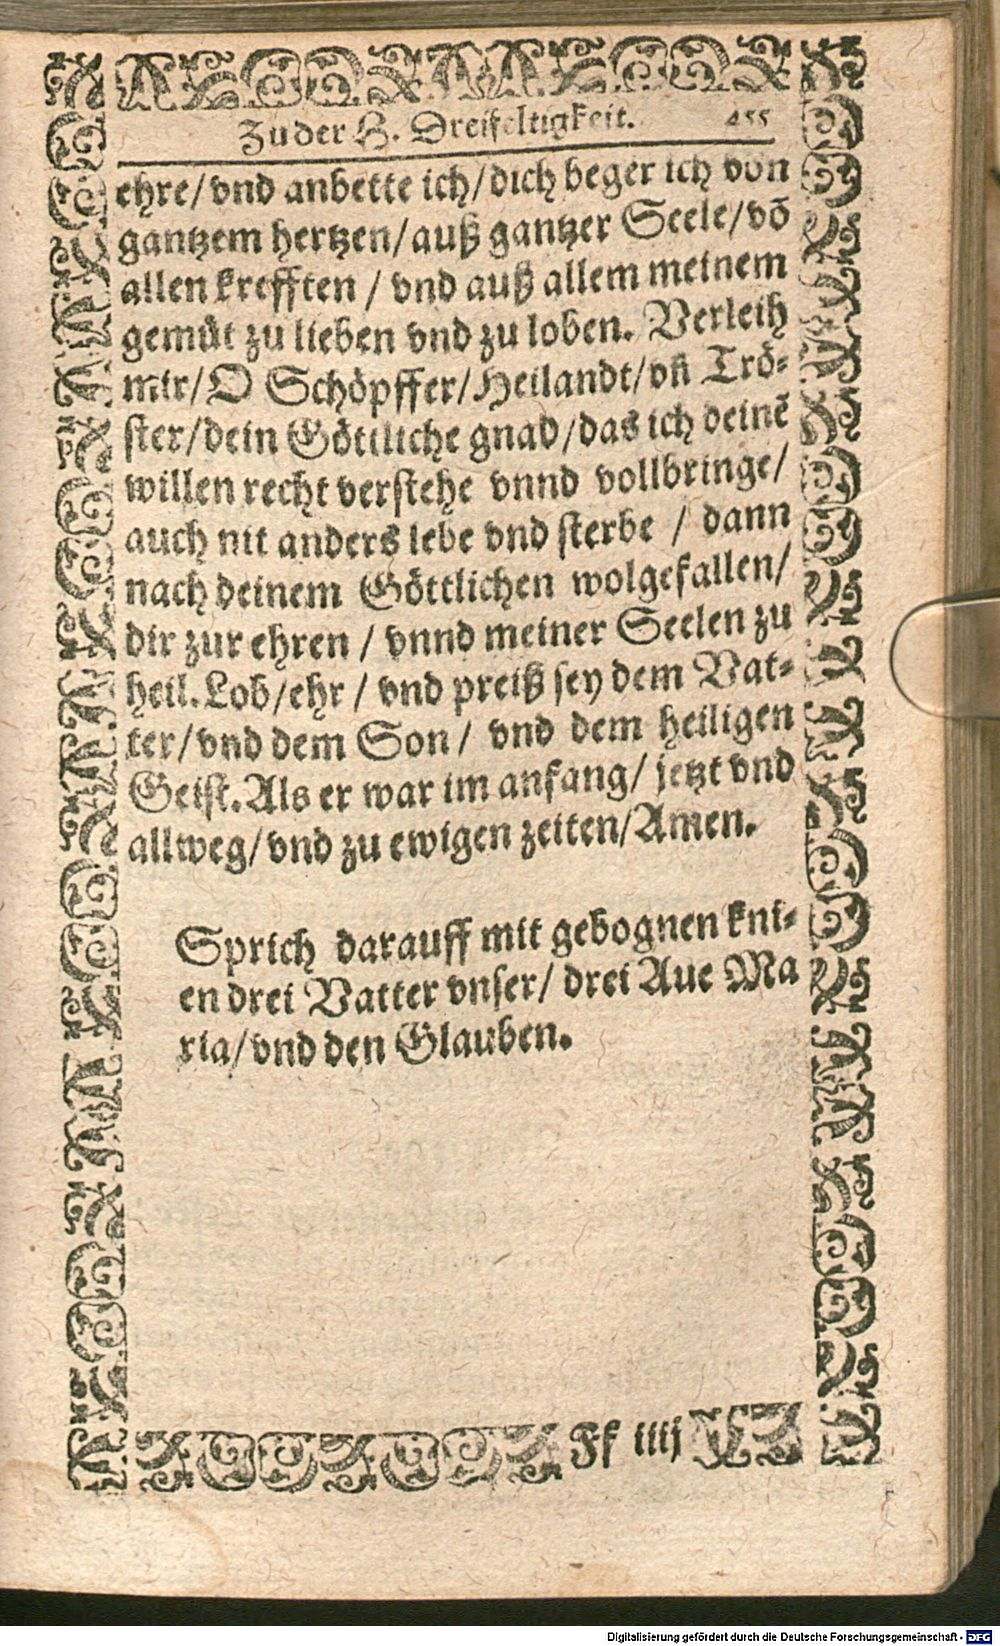 Zu der H. Dreifeltigkeit. 455
ehre/vnd anbette ich/dich beger ich von
gantzem hertzen/auß gantzer Seele/võ
allen krefften / vnd auß allem meinem
gemüt zu lieben vnd zu loben. Verleih
mir/O Schöpffer/Heilandt/vñ Trö⸗
ster/dein Göttliche gnad/das ich deinẽ
willen recht verstehe vnnd vollbringe/
auch nit anders lebe vnd sterbe / dann
nach deinem Göttlichen wolgefallen/
dir zur ehren / vnnd meiner Seelen zu
heil. Lob/ehr / vnd preiß sey dem Vat⸗
ter/vnd dem Son/ vnd dem heiligen
Geist. Als er war im anfang/ jetzt vnd
allweg/vnd zu ewigen zeiten/Amen.
Sprich darauff mit gebognen kni⸗
en drei Vatter vnser/ drei Aue Ma
ria/vnd den Glauben.
Ff iiij
Digitalisierung gefördert durch die Deutsche Forschungsgemeinschaft - DFG